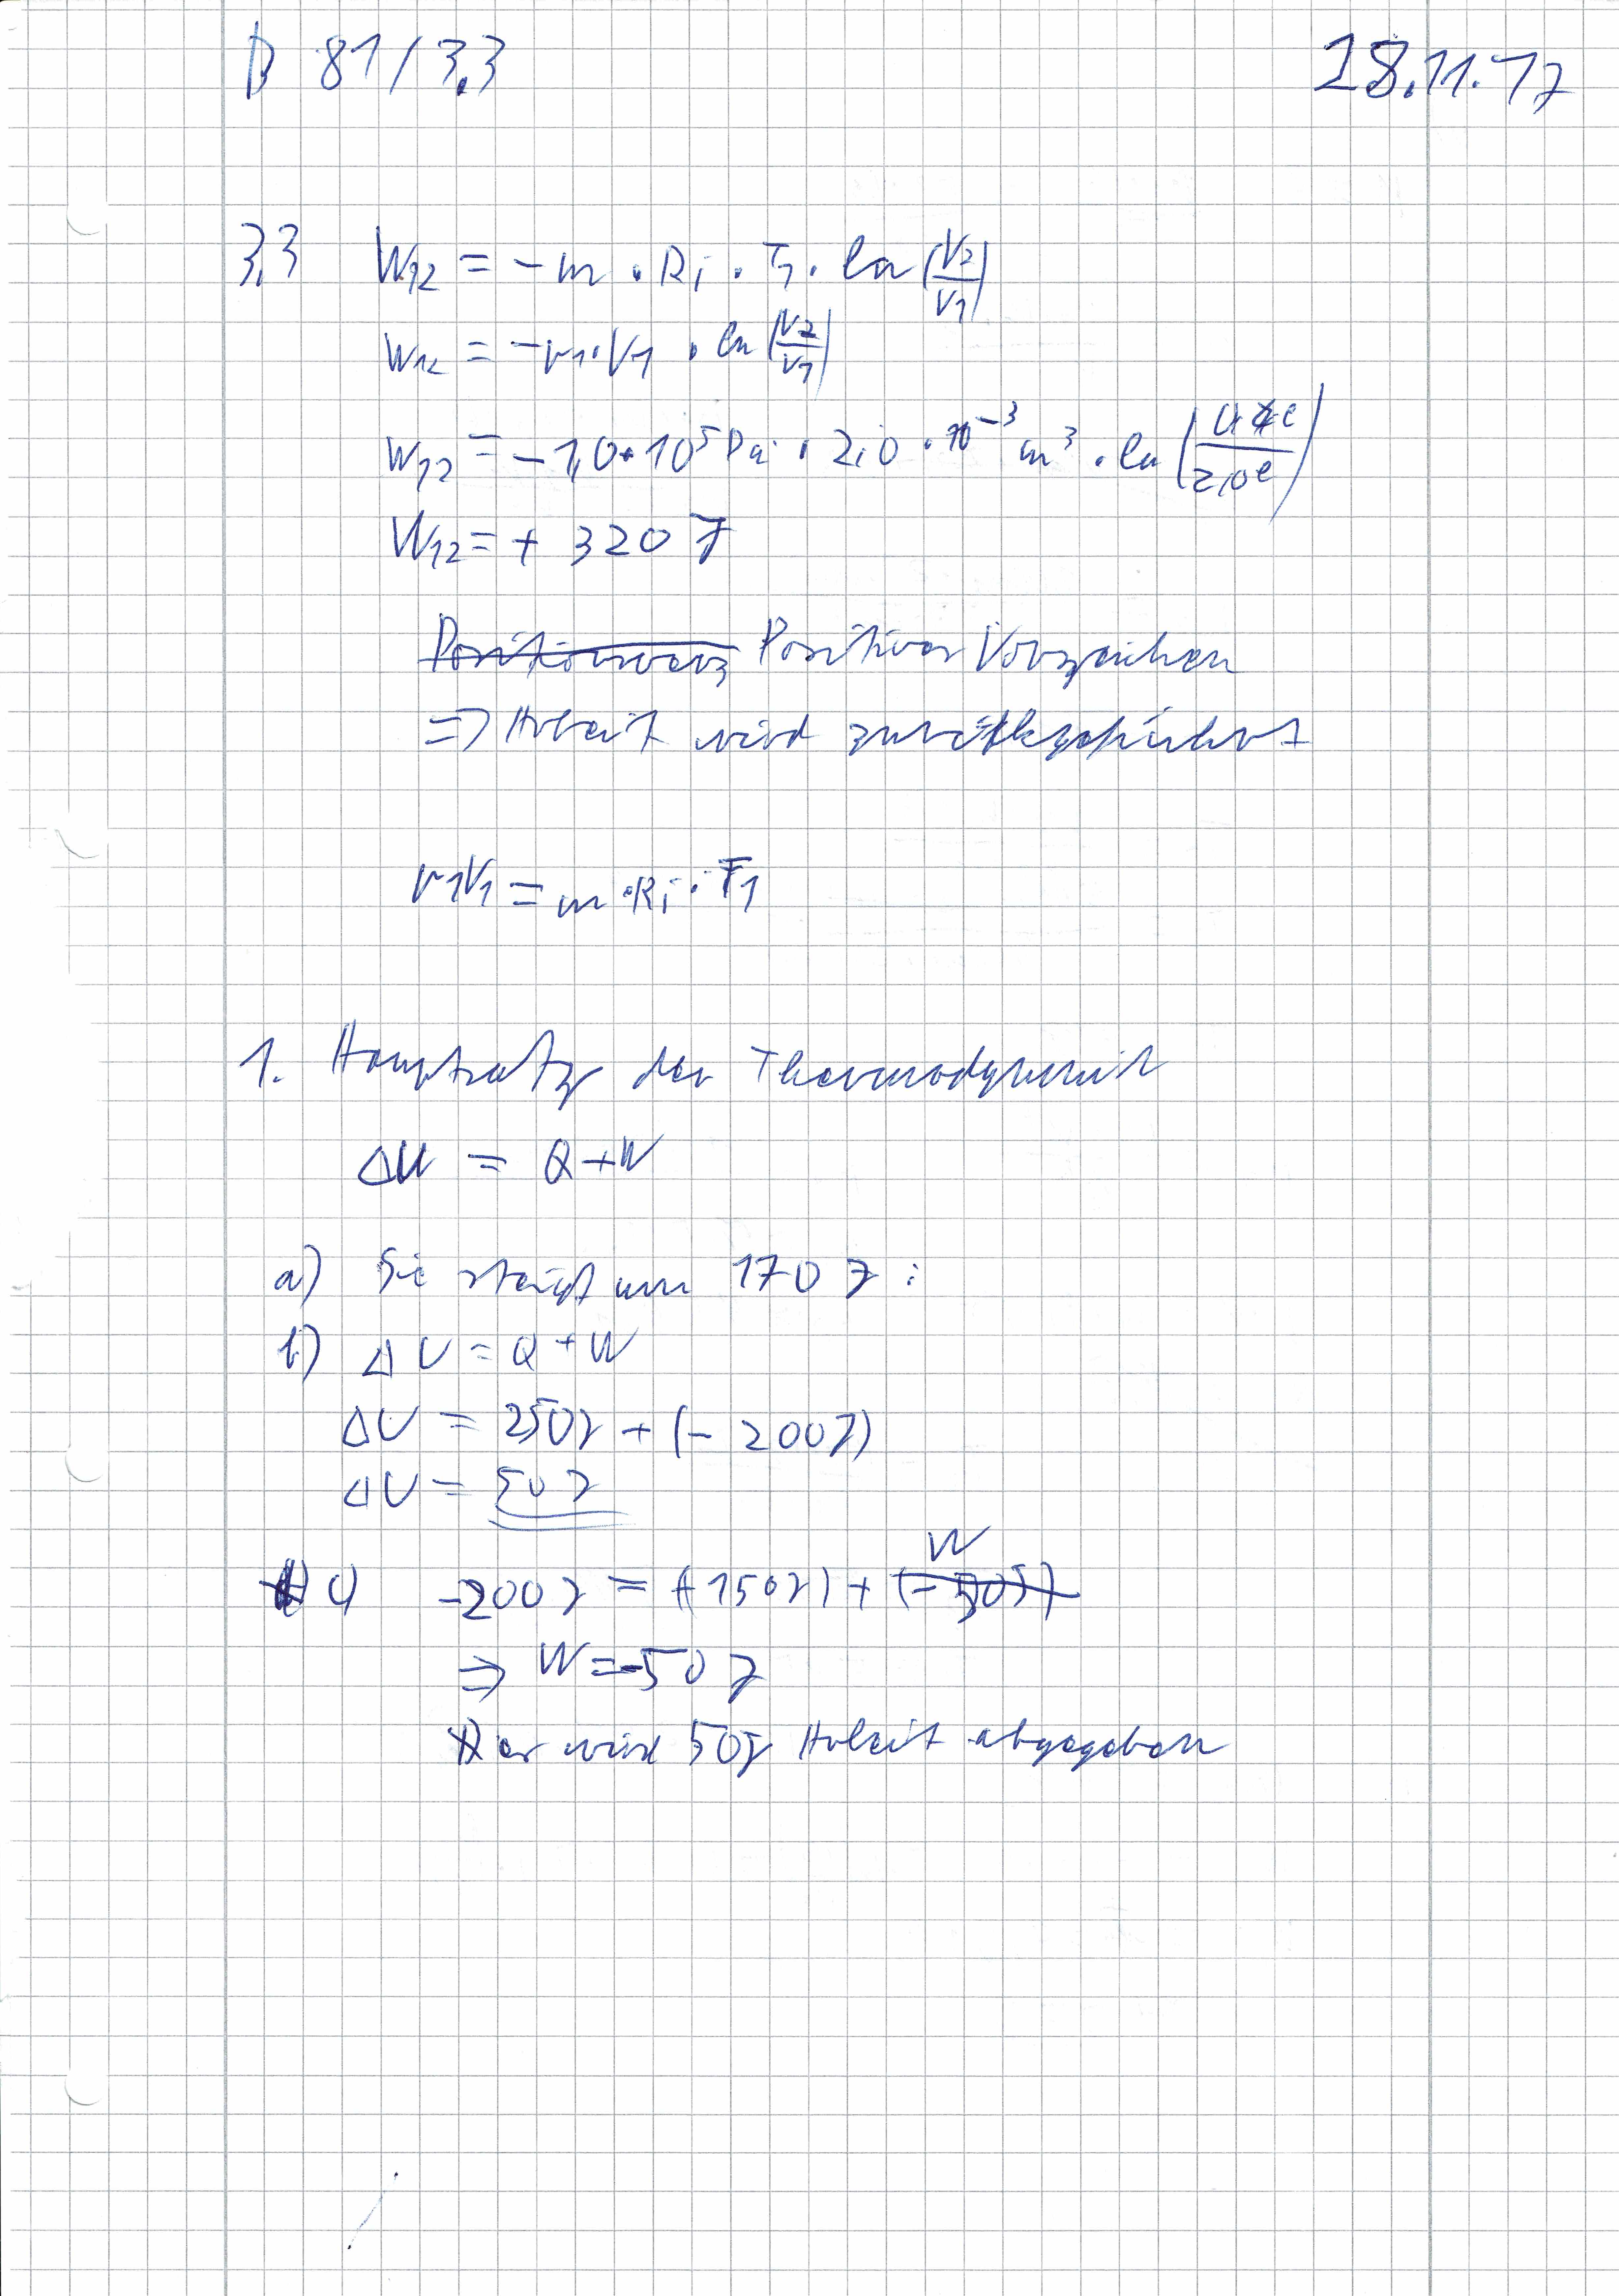 B 81/3.3 28.11.17
3.3 W12 = -m · Ri · T1 · ln (V2/V1)
W12 = -p1·V1 · ln (V2/V1)
W12 = -1,0·10^5 Pa · 2,0 · 10^-3 m^3 · ln ( /2,0l)
W12 = + 320 J
Positives Vorzeichen
=> Arbeit wird
p1V1 = m·Ri·T1
1. Hauptsatz der Thermodynamik
ΔU = Q+W
a) Sie steigt um 170 J :
b) ΔU = Q+W
ΔU = 250J + (- 200J)
ΔU = 50J
c) -200J = (-150J) + W
=> W = -50 J
es wird 50J Arbeit abgegeben